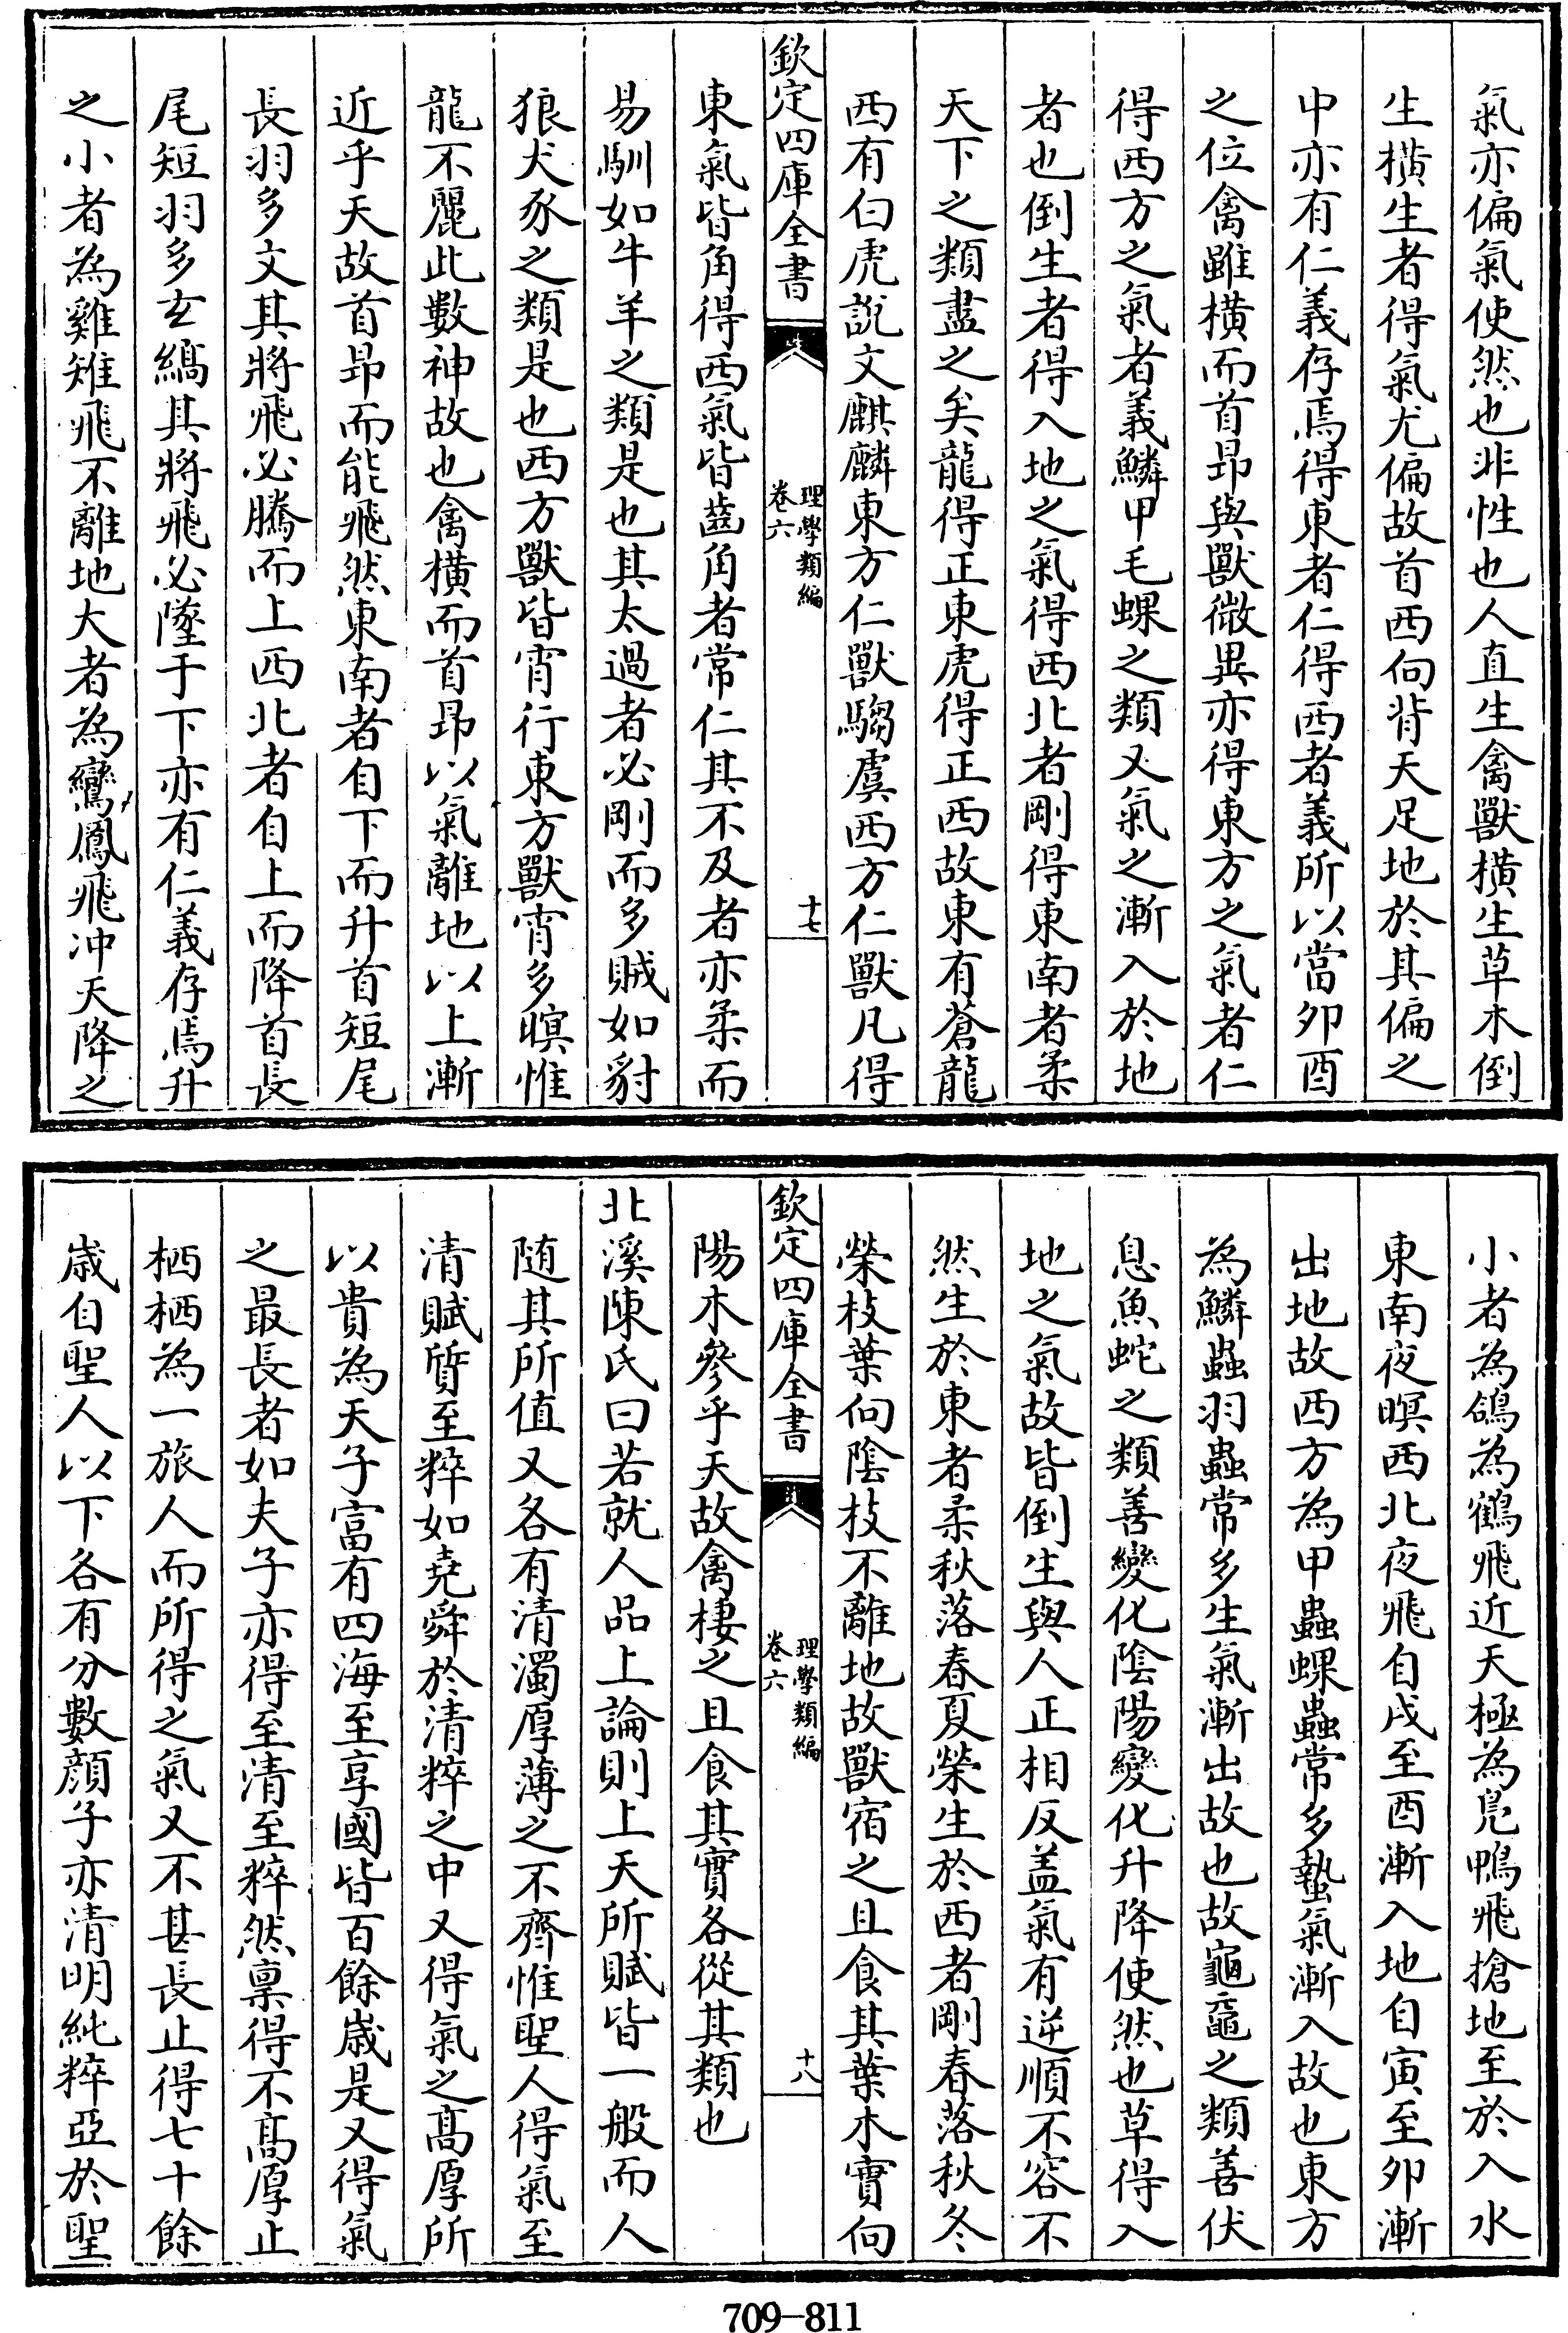 氣亦偏氣使然也非性也人直生禽獸橫生草木倒
生橫生者得氣尤偏故首西向背天足地於其偏之
中亦有仁義存焉得東者仁得西者義所以當卯酉
之位禽雖橫而首昻與獸微異亦得東方之氣者仁
得西方之氣者義鱗甲毛蜾之類又氣之漸入於地
者也倒生者得入地之氣得西北者剛得東南者柔
天下之類盡之矣龍得正東虎得正西故東有蒼龍
西有白虎說文麒麟東方仁獸騶虞西方仁獸凡得
欽定四庫全書
理學類編
卷六
十七
東氣皆角得西氣皆齒角者常仁其不及者亦柔而
易馴如牛羊之類是也其太過者必剛而多賊如豺
狼犬豕之類是也西方獸皆宵行東方獸宵多暝惟
龍不麗此數神故也禽橫而首昻以氣離地以上漸
近乎天故首昻而能飛然東南者自下而升首短尾
長羽多文其將飛必騰而上西北者自上而降首長
尾短羽多玄縞其將飛必墜于下亦有仁義存焉升
之小者為雞雉飛不離地大者為鸞鳳飛冲天降之
小者為鴿為鶴飛近天極為鳧鴨飛搶地至於入水
東南夜暝西北夜飛自戌至酉漸入地自寅至卯漸
出地故西方為甲蟲蜾蟲常多蟄氣漸入故也東方
為鱗蟲羽蟲常多生氣漸出故也故龜黿之類善伏
息魚蛇之類善變化陰陽變化升降使然也草得入
地之氣故皆倒生與人正相反盖氣有逆順不容不
然生於東者柔秋落春夏榮生於西者剛春落秋冬
榮枝葉向陰枝不離地故獸宿之且食其葉木實向
欽定四庫全書
理學類編
卷六
十八
陽木參乎天故禽棲之且食其實各從其類也
北溪陳氏曰若就人品上論則上天所賦皆一般而人
随其所值又各有清濁厚薄之不齊惟聖人得氣至
清賦質至粹如堯舜於清粹之中又得氣之高厚所
以貴為天子富有四海至享國皆百餘歲是又得氣
之最長者如夫子亦得至清至粹然稟得不高厚止
栖栖為一旅人而所得之氣又不甚長止得七十餘
歲自聖人以下各有分數顔子亦清明純粹亞於聖
709-811